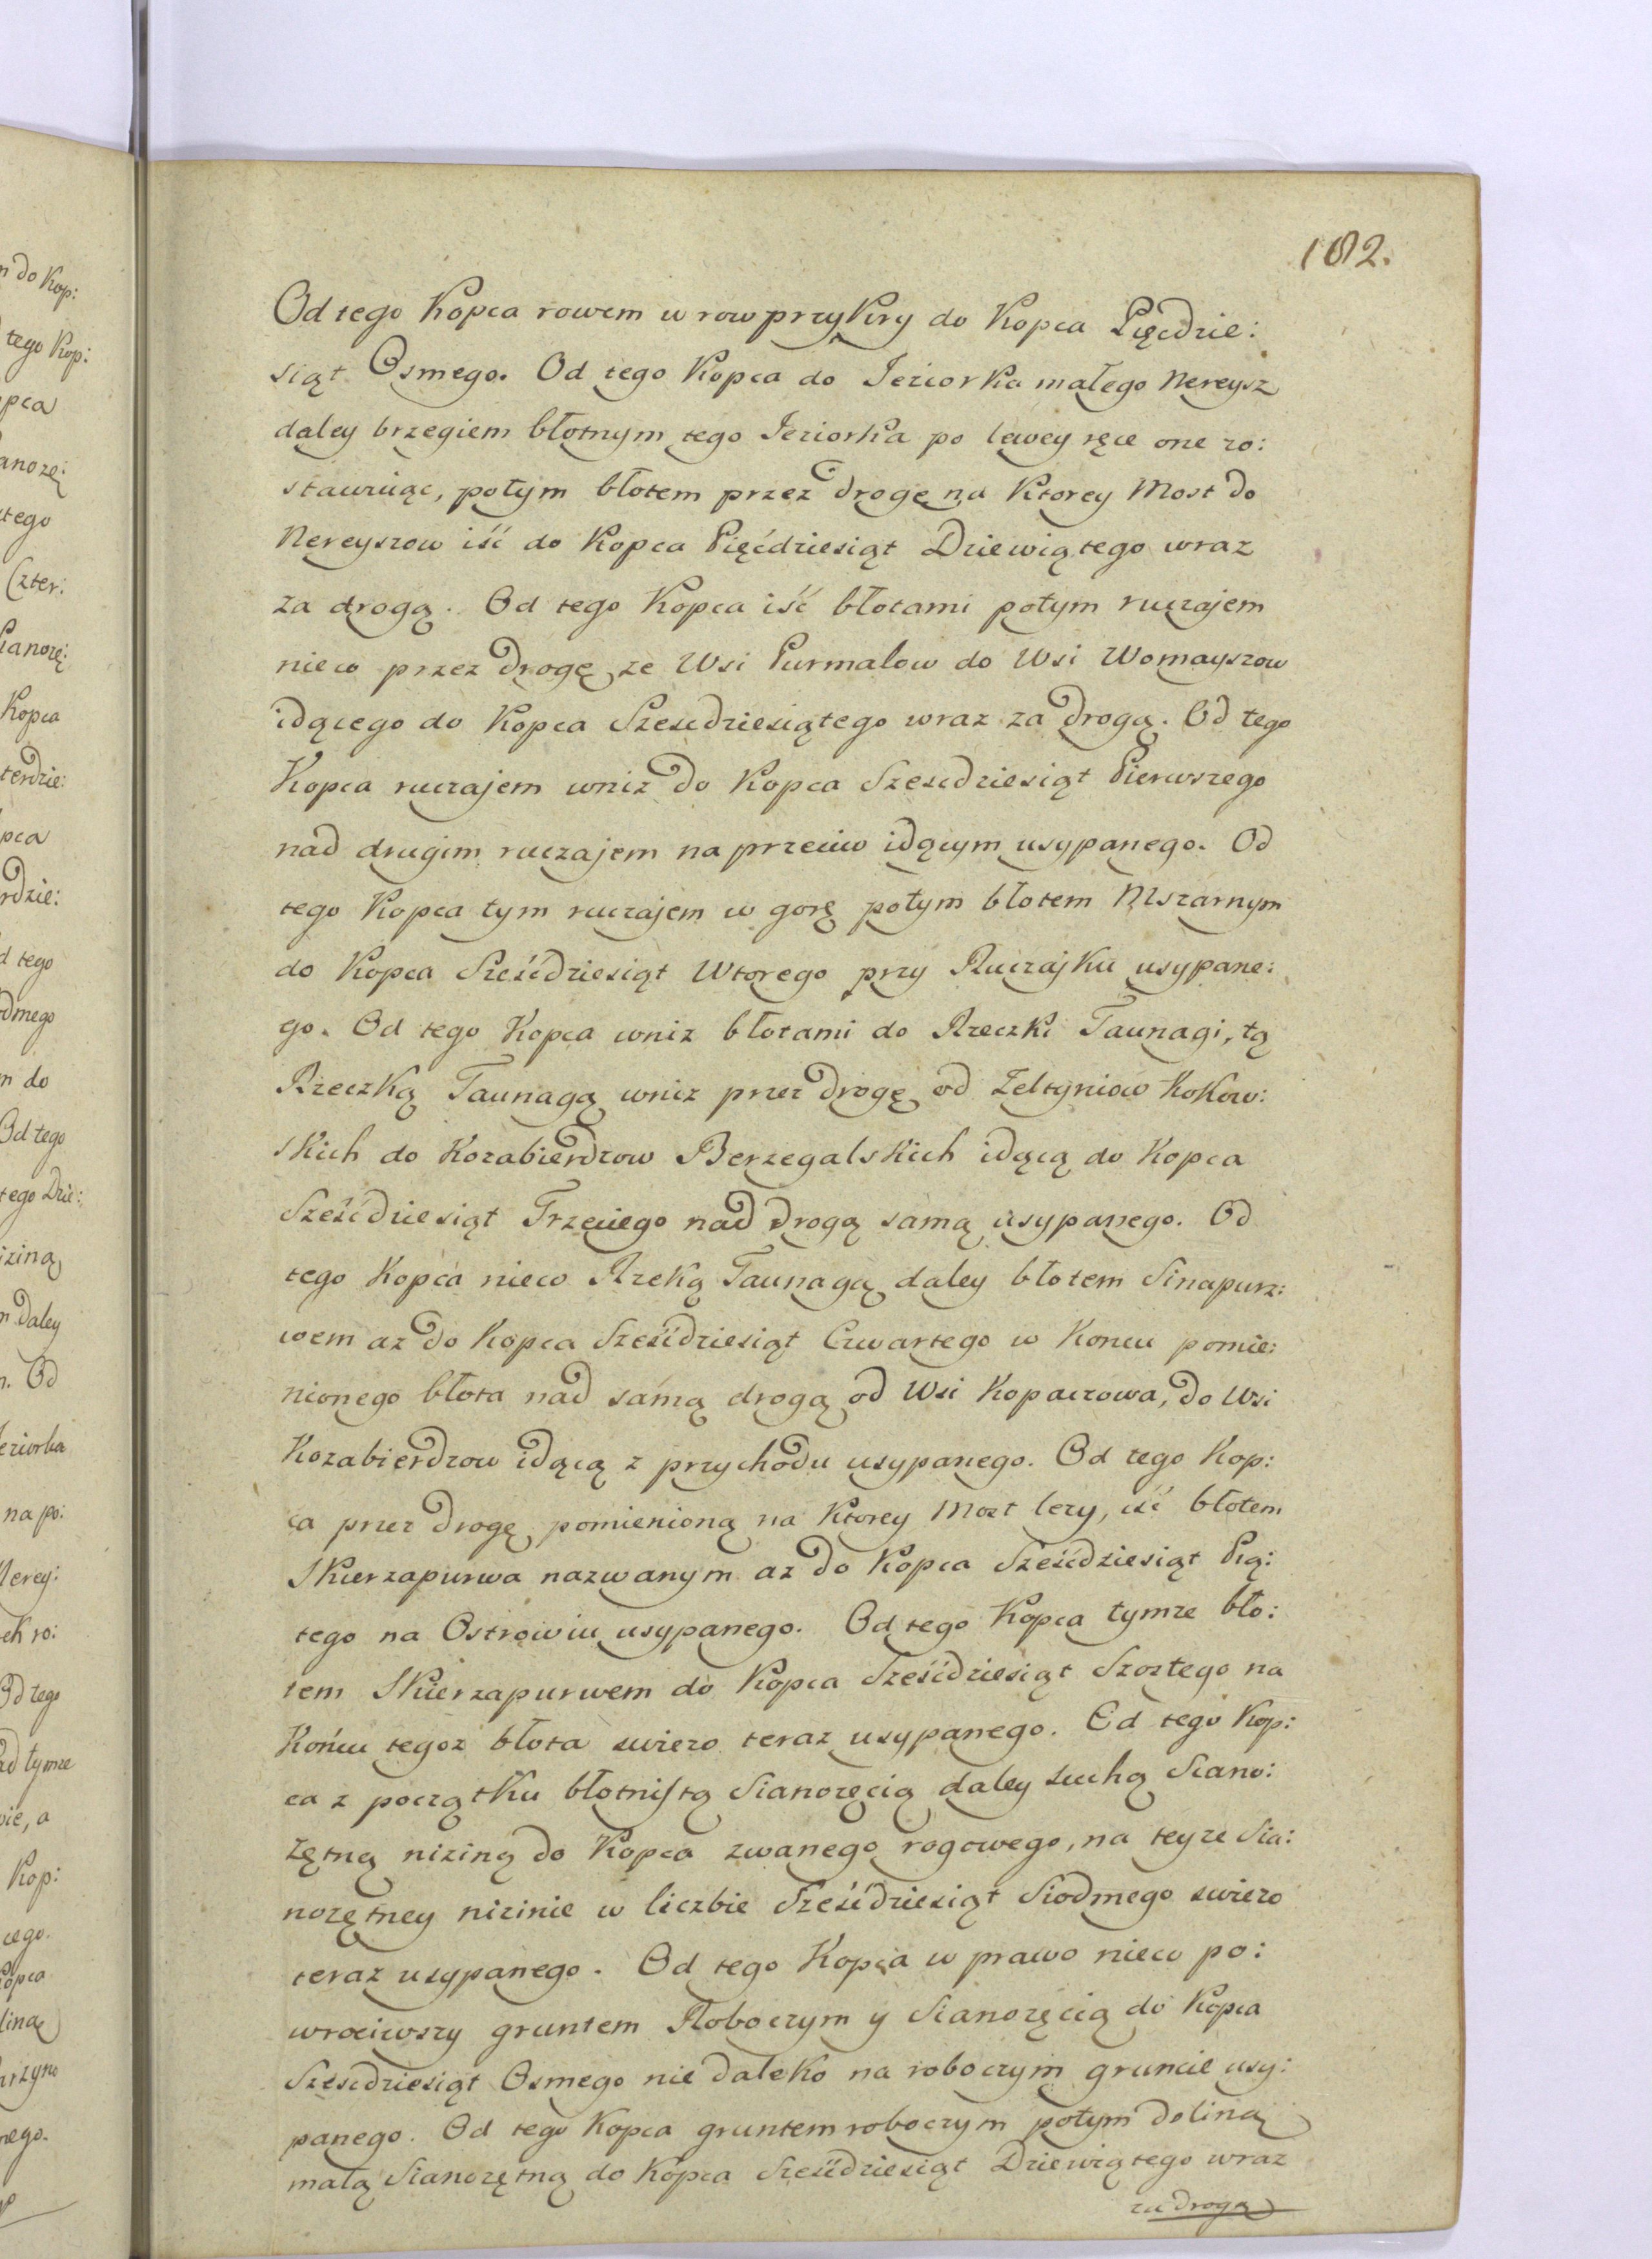 182.
Od tego Kopca rowem w row przykry do Kopca Pięcdzie:
siąt Osmego. Od tego Kopca do Jeziorka małego Nereysz
daley brzegiem błotnym tego Jeziorka po lewey ręce one zo:
stawuiąc, potym błotem przez drogę na Ktorey Most do
Nereyszow iść do Kopca Pięćdziesiąt Dziewiątego wraz
za drogą. Od tego Kopca iść błotami potym ruczajem
nieco przez drogę ze Wsi Purmalow do Wsi Womayszow
idącego do Kopca Szescdziesiątego wraz za drogą. Od tego
Kopca ruczajem wniz do Kopca Szescdziesiąt Pierwszego
nad drugim ruczajem na przeciw idącym usypanego. Od
tego Kopca tym ruczajem w gorę potym błotem Mszarnym
do Kopca Sześćdziesiąt Wtorego przy Ruczajku usypane:
go. Od tego Kopca wniz błotami do Rzeczki Taunagi, tą
Rzeczką Taunagą wniz przez drogę od Zeltyniow Kokow:
skich do Kozabierdzow Berzegalskich idącą do Kopca
Sześćdziesiąt Trzeciego nad drogą samą usypanego. Od
tego Kopca nieco Rzeką Taunagą daley błotem Sinapurz:
wem az do Kopca Sześćdziesiąt Czwartego w Koncu pomie:
nionego błota nad samą drogą od Wsi Kopaczowa, do Wsi
Kozabierdzow idącą z przychodu usypanego. Od tego Kop:
ca przez drogę pomienioną na Ktorey Most lezy, iść błotem
Skierzapurwa nazwanym az do Kopca Sześćdziesiąt Pią:
tego na Ostrowiu usypanego. Od tego Kopca tymze bło:
tem Skierzapurwem do Kopca Sześćdziesiąt Szoztego na
Końcu tegoz błota swiezo teraz usypanego. Od tego Kop:
ca z początku błotnistą Sianozęcią daley suchą Siano:
zętną niziną do Kopca zwanego rogowego, na teyze Sia:
nozętney nizinie w liczbie Sześćdziesiąt Siodmego swiezo
teraz usypanego. Od tego Kopca w prawo nieco po:
wrociwszy gruntem Roboczym y Sianozęcią do Kopca
Szescdziesiąt Osmego nie daleko na roboczym gruncie usy:
panego. Od tego Kopca gruntem roboczym potym doliną
małą Sianozętną do Kopca Sześćdziesiąt Dziewiątego wraz
za drogą